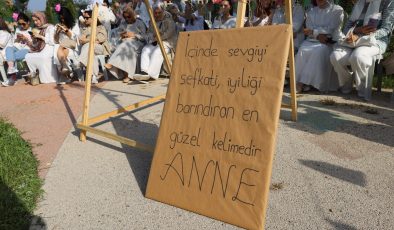 İçinde sevgiyi
şefkati, iyiliği
barındıran en
güzel kelimedir
ANNE